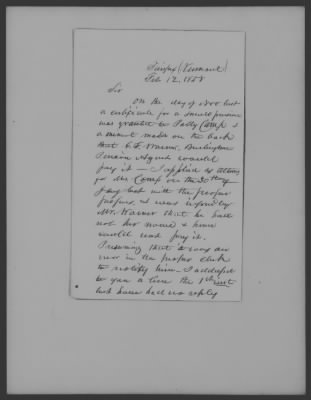 Fairfax (Vermont)
Feb 12, 1858
Sir
On the day of 1800 last
a certificate for a small pension
was granted to Polly Camp &
a minute made on the back
that C. F. Warner, Burlington
Pension Agent would
pay it — I applied as Attorney
for Mrs Camp on the
last with the proper
papers, & was informed by
Mr. Warner that he had
not her name & hence
could not pay it.
Presuming that it was an
error in the proper clerk
to notify him — I addressed
to you a line the 1st inst
but have had no reply